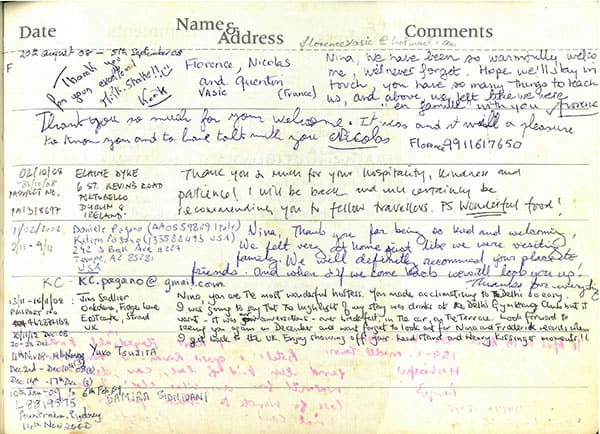 Date Name & Address Comments
florencevasic@hotmail.com
20th August 08 - 5th September 08
F
Thank you
for your excellent
Milk-Shake!!
Florence, Nicolas
and Quentin
VASIC (France)
Nina, We have been so warmfully welco
me, we'll never forget. Hope we'll stay in
touch, you have so many things to teach
us, and above, we felt like we were
"en famille" with you Florence
Thank you so much for your welcome. It was and it will a pleasure
to know you and to have talk with you Nicolas
Florence 9911617650
02/10/08
-31/10/08
PASSPORT NO.
ELAINE DYKE
6 ST. KEVINS ROAD
PORTOBELLO
DUBLIN 8
IRELAND.
Thank you so much for your hospitality, kindness and
patience! I will be back and will certainly be
recommending you to fellow travellers. PS Wonderful food!
2/11 - 9/11
Daniele Pagano
Tempe, AZ 85281
USA
Nina, Thank you for being so kind and welcoming,
We felt very at home just like we were visiting
family. We will definitely recommend your place to
friends. and when if we come back we will look you up!
Thanks for everything
KC - KC.pagano@gmail.com
13/11 - 16/11/08
PASSPORT NO
Jim Sadler
Oakdene,
Eastcombe, Stroud
UK.
Nina, you are the most wonderful hostess. You made acclimatising to Delhi so easy.
I was going to say that the highlight of my stay was drinks at the Delhi Gymkhana Club but it
wasn't - it was your conversation - at breakfast, in the car, on the Terrace. Look forward to
seeing you again in December and wont forget to look out for Nina and Frederick records when
I get back to the UK. Enjoy showing off your head stand and Henry Kissinger moments!!
YUKO TSUJITA
Dec 14th - 17th Dec
10th Jan-09 to 6th Feb 09
L8819375
Australia, Sydney
DAMIRA SIDILDANI